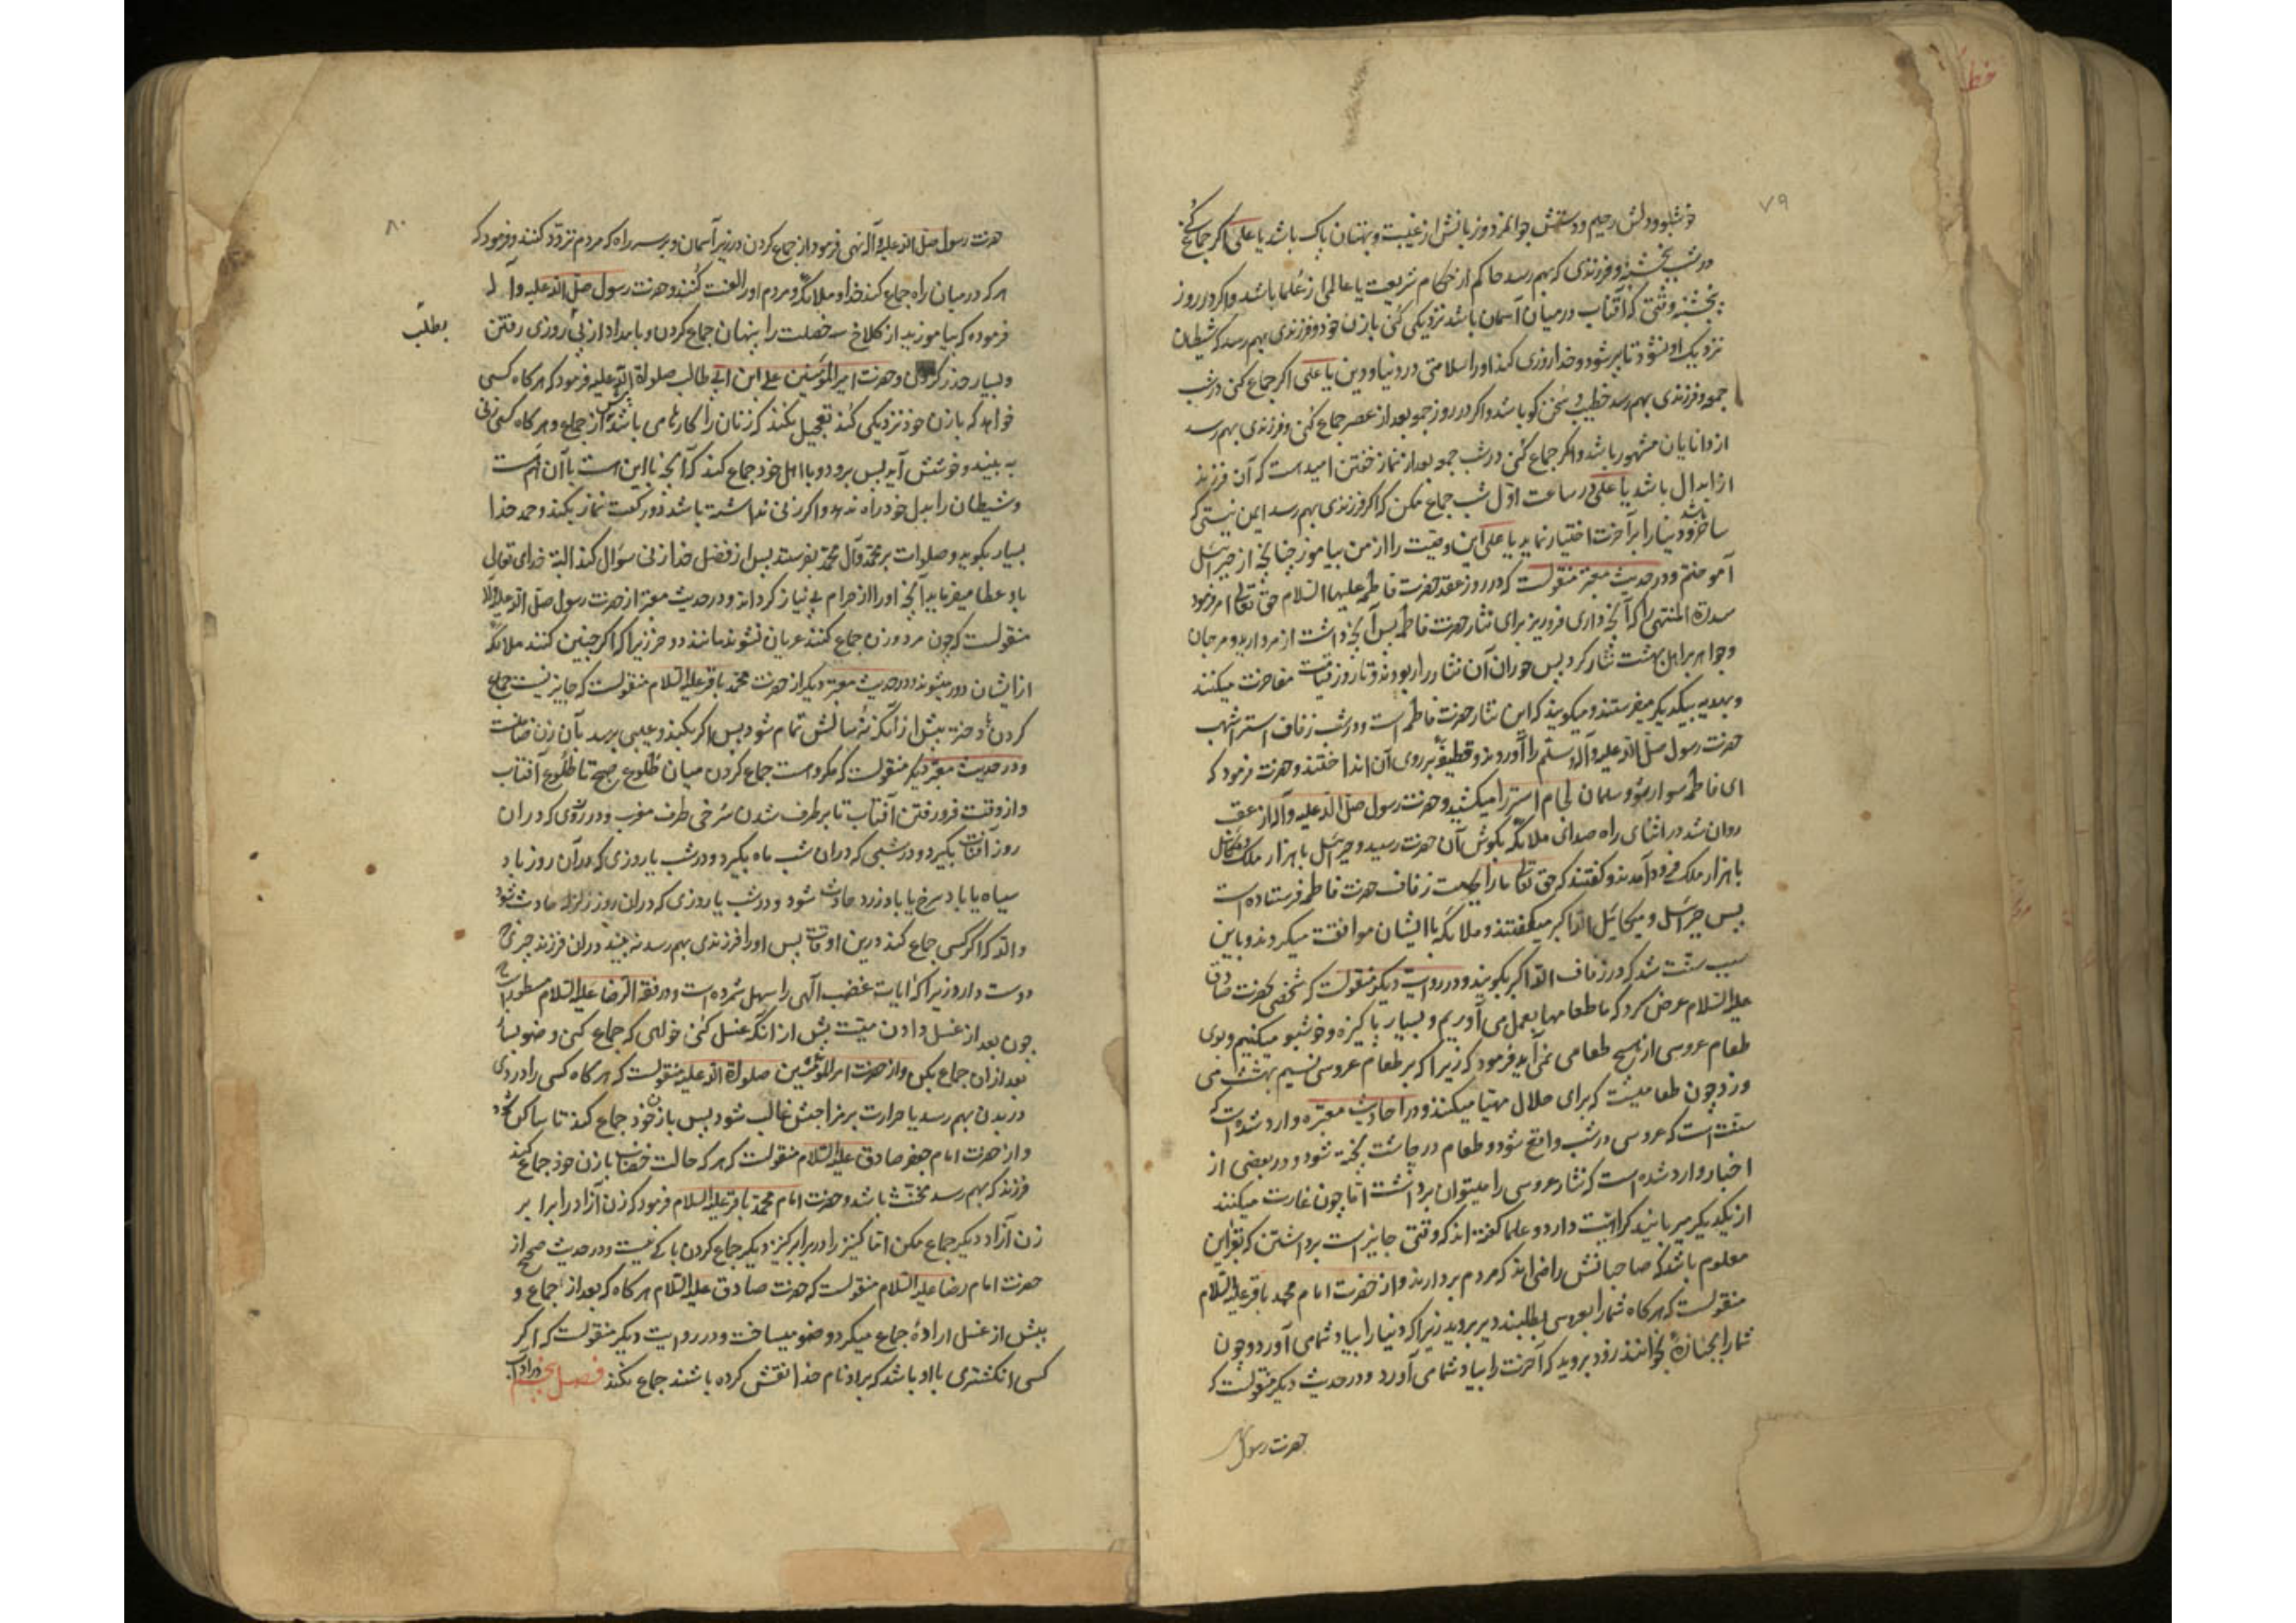 خط
۷۹
خوشبو و دلش رحیم و دستش جوانمرد و زبانش از غیبت و بهتان پاک باشد یا علی اگر جماع کنی
در شب پنجشنبه و فرزندی که بهم رسد حاکم از حکام شریعت یا عالمی از علما باشد و اگر در روز
پنجشنبه وقتی که آفتاب در میان آسمان باشد نزدیکی کنی با زن خود و فرزندی بهم رسد که شیطان
نزدیک او نشود تا پیر شود و خدا روزی کند او را سلامتی در دنیا و دین یا علی اگر جماع کنی در شب
جمعه و فرزندی بهم رسد خطیب و سخن کو باشد و اگر در روز جمعه بعد از عصر جماع کنی و فرزندی بهم رسد
از دانایان مشهور باشد و اگر جماع کنی در شب جمعه بعد از نماز خفتن امید است که آن فرزند
از ابدال باشد یا علی در ساعت اول شب جماع مکن که اگر فرزندی بهم رسد ایمن نیستی که
ساحر باشد و دنیا را بر آخرت اختیار نماید یا علی این وصیت را از من بیاموز چنانچه از جبرائیل
آموختم و در حدیث معتبر منقولست که در روز عقد حضرت فاطمه علیها السلام حق تعالی امر فرمود
سدرة المنتهی را که آنچه داری فرو ریز برای نثار حضرت فاطمه پس آنچه داشت از مروارید و مرجان
و جواهر بر اهل بهشت نثار کرد پس حوران آن نثار را ربودند و تا روز قیامت مفاخرت میکنند
و بهدیه بیکدیکر میفرستند و میکویند که این نثار حضرت فاطمه است و در شب زفاف استر اشهب
حضرت رسول صلی الله علیه و آله و سلم را آوردند و قطیفه بر روی آن انداختند و حضرت فرمود که
ای فاطمه سوار شو و سلمان لجام استر را میکشید و حضرت رسول صلی الله علیه و آله از عقب
روان شد در اثنای راه صدای ملائکه بکوش آن حضرت رسید و جبرائیل با هزار ملک و میکائیل
با هزار ملک فرود آمدند و کفتند که حق تعالی ما را بجهت زفاف حضرت فاطمه فرستاده است
پس جبرائیل و میکائیل الله اکبر میکفتند و ملائکه با ایشان موافقت میکردند و باین
سبب سنت شد که در زفاف الله اکبر بکویند و در روایت دیکر منقولست که شخصی بحضرت صادق
علیه السلام عرض کرد که ما طعامها بعمل می آوریم و بسیار پاکیزه و خوشبو میکنیم و بوی
طعام عروسی از هیچ طعامی نمی آید فرمود که زیرا که بر طعام عروسی نسیم بهشت می
وزد چون طعامیست که برای حلال مهیا میکنند و در احادیث معتبره وارد شده است که
سنت است که عروسی در شب واقع شود و طعام در چاشت پخته شود و در بعضی از
اخبار وارد شده است که نثار عروسی را میتوان برداشت اما چون غارت میکنند
از یکدیکر میربایند کراهت دارد و علما کفته اند که وقتی جایز است برداشتن که بقراین
معلوم باشد که صاحبانش راضی اند که مردم بردارند و از حضرت امام محمد باقر علیه السلام
منقولست که هرکاه شما را بعروسی بطلبند دیر بروید زیرا که دنیا را بیاد شما می آورد و چون
شما را بجنازه بخوانند زود بروید که آخرت را بیاد شما می آورد و در حدیث دیکر منقولست که
حضرت رسول
۸۰
حضرت رسول صلی الله علیه و آله نهی فرمود از جماع کردن در زیر آسمان و بر سر راه که مردم تردد کنند و فرمود که
هر که در میان راه جماع کند خدا و ملائکه و مردم او را لعنت کنند و حضرت رسول صلی الله علیه و آله
فرموده که بیاموزید از کلاغ سه خصلت را پنهان جماع کردن و بامداد از پی روزی رفتن
بطلب
و بسیار حذر کردن و حضرت امیر المؤمنین علی ابن ابی طالب صلوات الله علیه فرمود که هرکاه کسی
خواهد که با زن خود نزدیکی کند تعجیل نکند که زنان را کارها می باشد پیش از جماع و هرکاه کسی زنی
به بیند و خوشش آید پس برود و با اهل خود جماع کند که آنچه با این است با آن هم است
و شیطان را بدل خود راه ندهد و اگر زنی نداشته باشد دو رکعت نماز بکند و حمد خدا
بسیار بکوید و صلوات بر محمد و آل محمد بفرستد پس از فضل خدا زنی سؤال کند البته خدای تعالی
باو عطا میفرماید آنچه او را از حرام بی نیاز کرداند و در حدیث معتبر از حضرت رسول صلی الله علیه و آله
منقولست که چون مرد و زن جماع کنند عریان نشوند مانند دو خر زیرا که اگر چنین کنند ملائکه
از ایشان دور میشوند و در حدیث معتبر دیکر از حضرت محمد باقر علیه السلام منقولست که جایز نیست جماع
کردن با دختر پیش از آنکه نه سالش تمام شود پس اگر بکند و عیبی برسد بآن زن ضامنست
و در حدیث معتبر دیکر منقولست که مکروه است جماع کردن میان طلوع صبح تا طلوع آفتاب
و از وقت فرو رفتن آفتاب تا بر طرف شدن سرخی طرف مغرب و در روزی که در ان
روز آفتاب بکیرد و در شبی که در ان شب ماه بکیرد و در شب یا روزی که در آن روز باد
سیاه یا باد سرخ یا باد زرد حادث شود و در شب یا روزی که در ان روز زلزله حادث شود
والله که اگر کسی جماع کند درین اوقات پس او را فرزندی بهم رسد نه بیند در ان فرزند چیزی که
دوست دارد زیرا که آیات غضب الهی را سهل شمرده است و در فقه الرضا علیه السلام مسطور است که
چون بعد از غسل دادن میت پیش از آنکه غسل کنی خواهی که جماع کنی وضو بساز
بعد از ان جماع بکن و از حضرت امیر المؤمنین صلوات الله علیه منقولست که هرکاه کسی را دردی
در بدن بهم رسد یا حرارت بر مزاجش غالب شود پس با زن خود جماع کند تا ساکن شود
و از حضرت امام جعفر صادق علیه السلام منقولست که هر که حالت خضاب با زن خود جماع کند
فرزند که بهم رسد مخنث باشد و حضرت امام محمد باقر علیه السلام فرمود که زن آزاد را برابر
زن آزاد دیکر جماع مکن اما کنیز را در برابر کنیز دیکر جماع کردن باکی نیست و در حدیث صحیح از
حضرت امام رضا علیه السلام منقولست که حضرت صادق علیه السلام هرکاه که بعد از جماع و
پیش از غسل ارادۀ جماع میکرد وضو میساخت و در روایت دیکر منقولست که اگر
کسی انکشتری با او باشد که بر او نام خدا نقش کرده باشند جماع نکند فصل پنجم در آداب